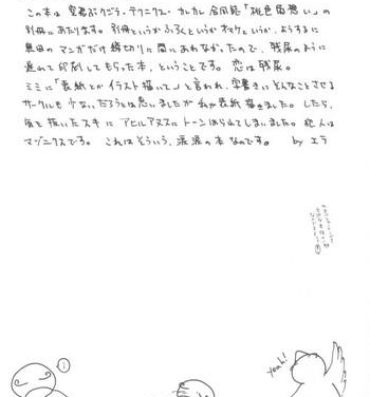 この本は 空昇ぶクジラ・テクニクス・カレカレ 合同誌「桃色片想い」の
別冊にあたります。別冊というかふろくというかオマケというか、ようするに
黒田の マンガだけ締切りに間にあわなかったので、残尿のように
遅れて印刷してもらった本、ということです。恋は残尿。
ミミに「表紙とか イラスト描いて」と言われ、字書きに どんなことさせる
サークルも 少ないだろうとは思いましたが 私が表紙 描きました。したら、
気を抜いたスキに アヒルアヌスに トーンはられてしまいました。犯人は
マゾニクスです。 これはどういう、涙涙の本 なのです。 by エラ
yeah!